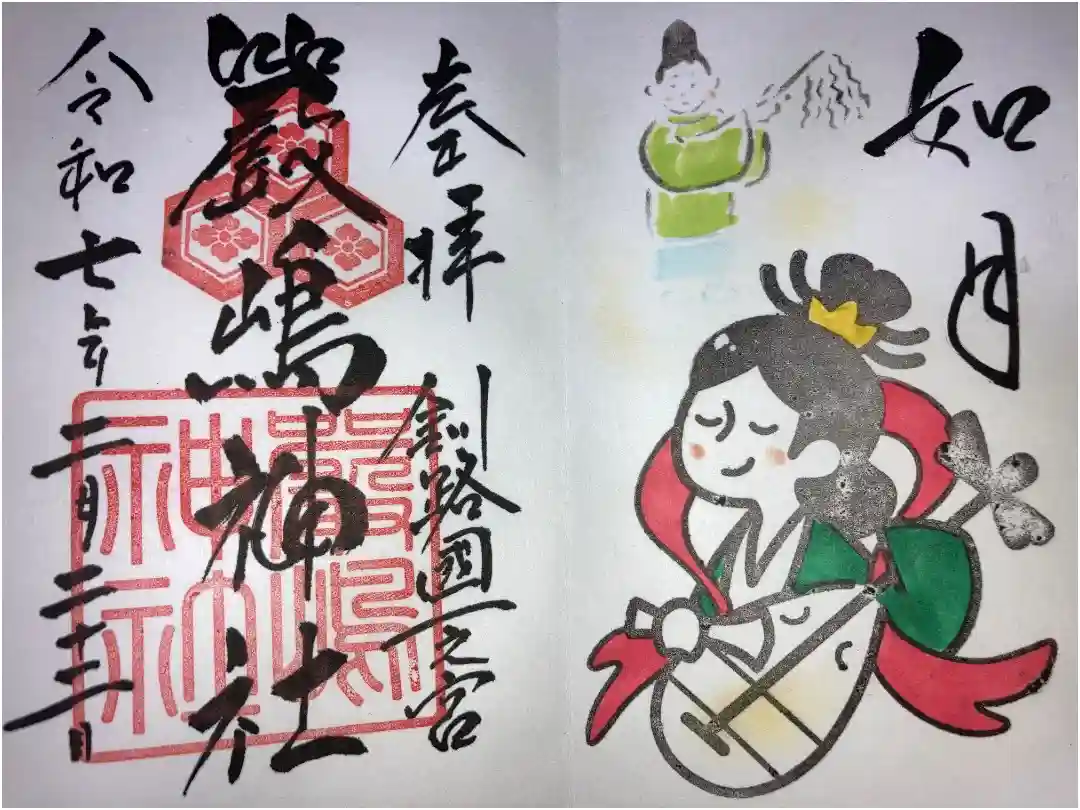 如月
奉拝
釧路國一之宮
嚴嶋神社
嚴嶋
神社
令和七年二月